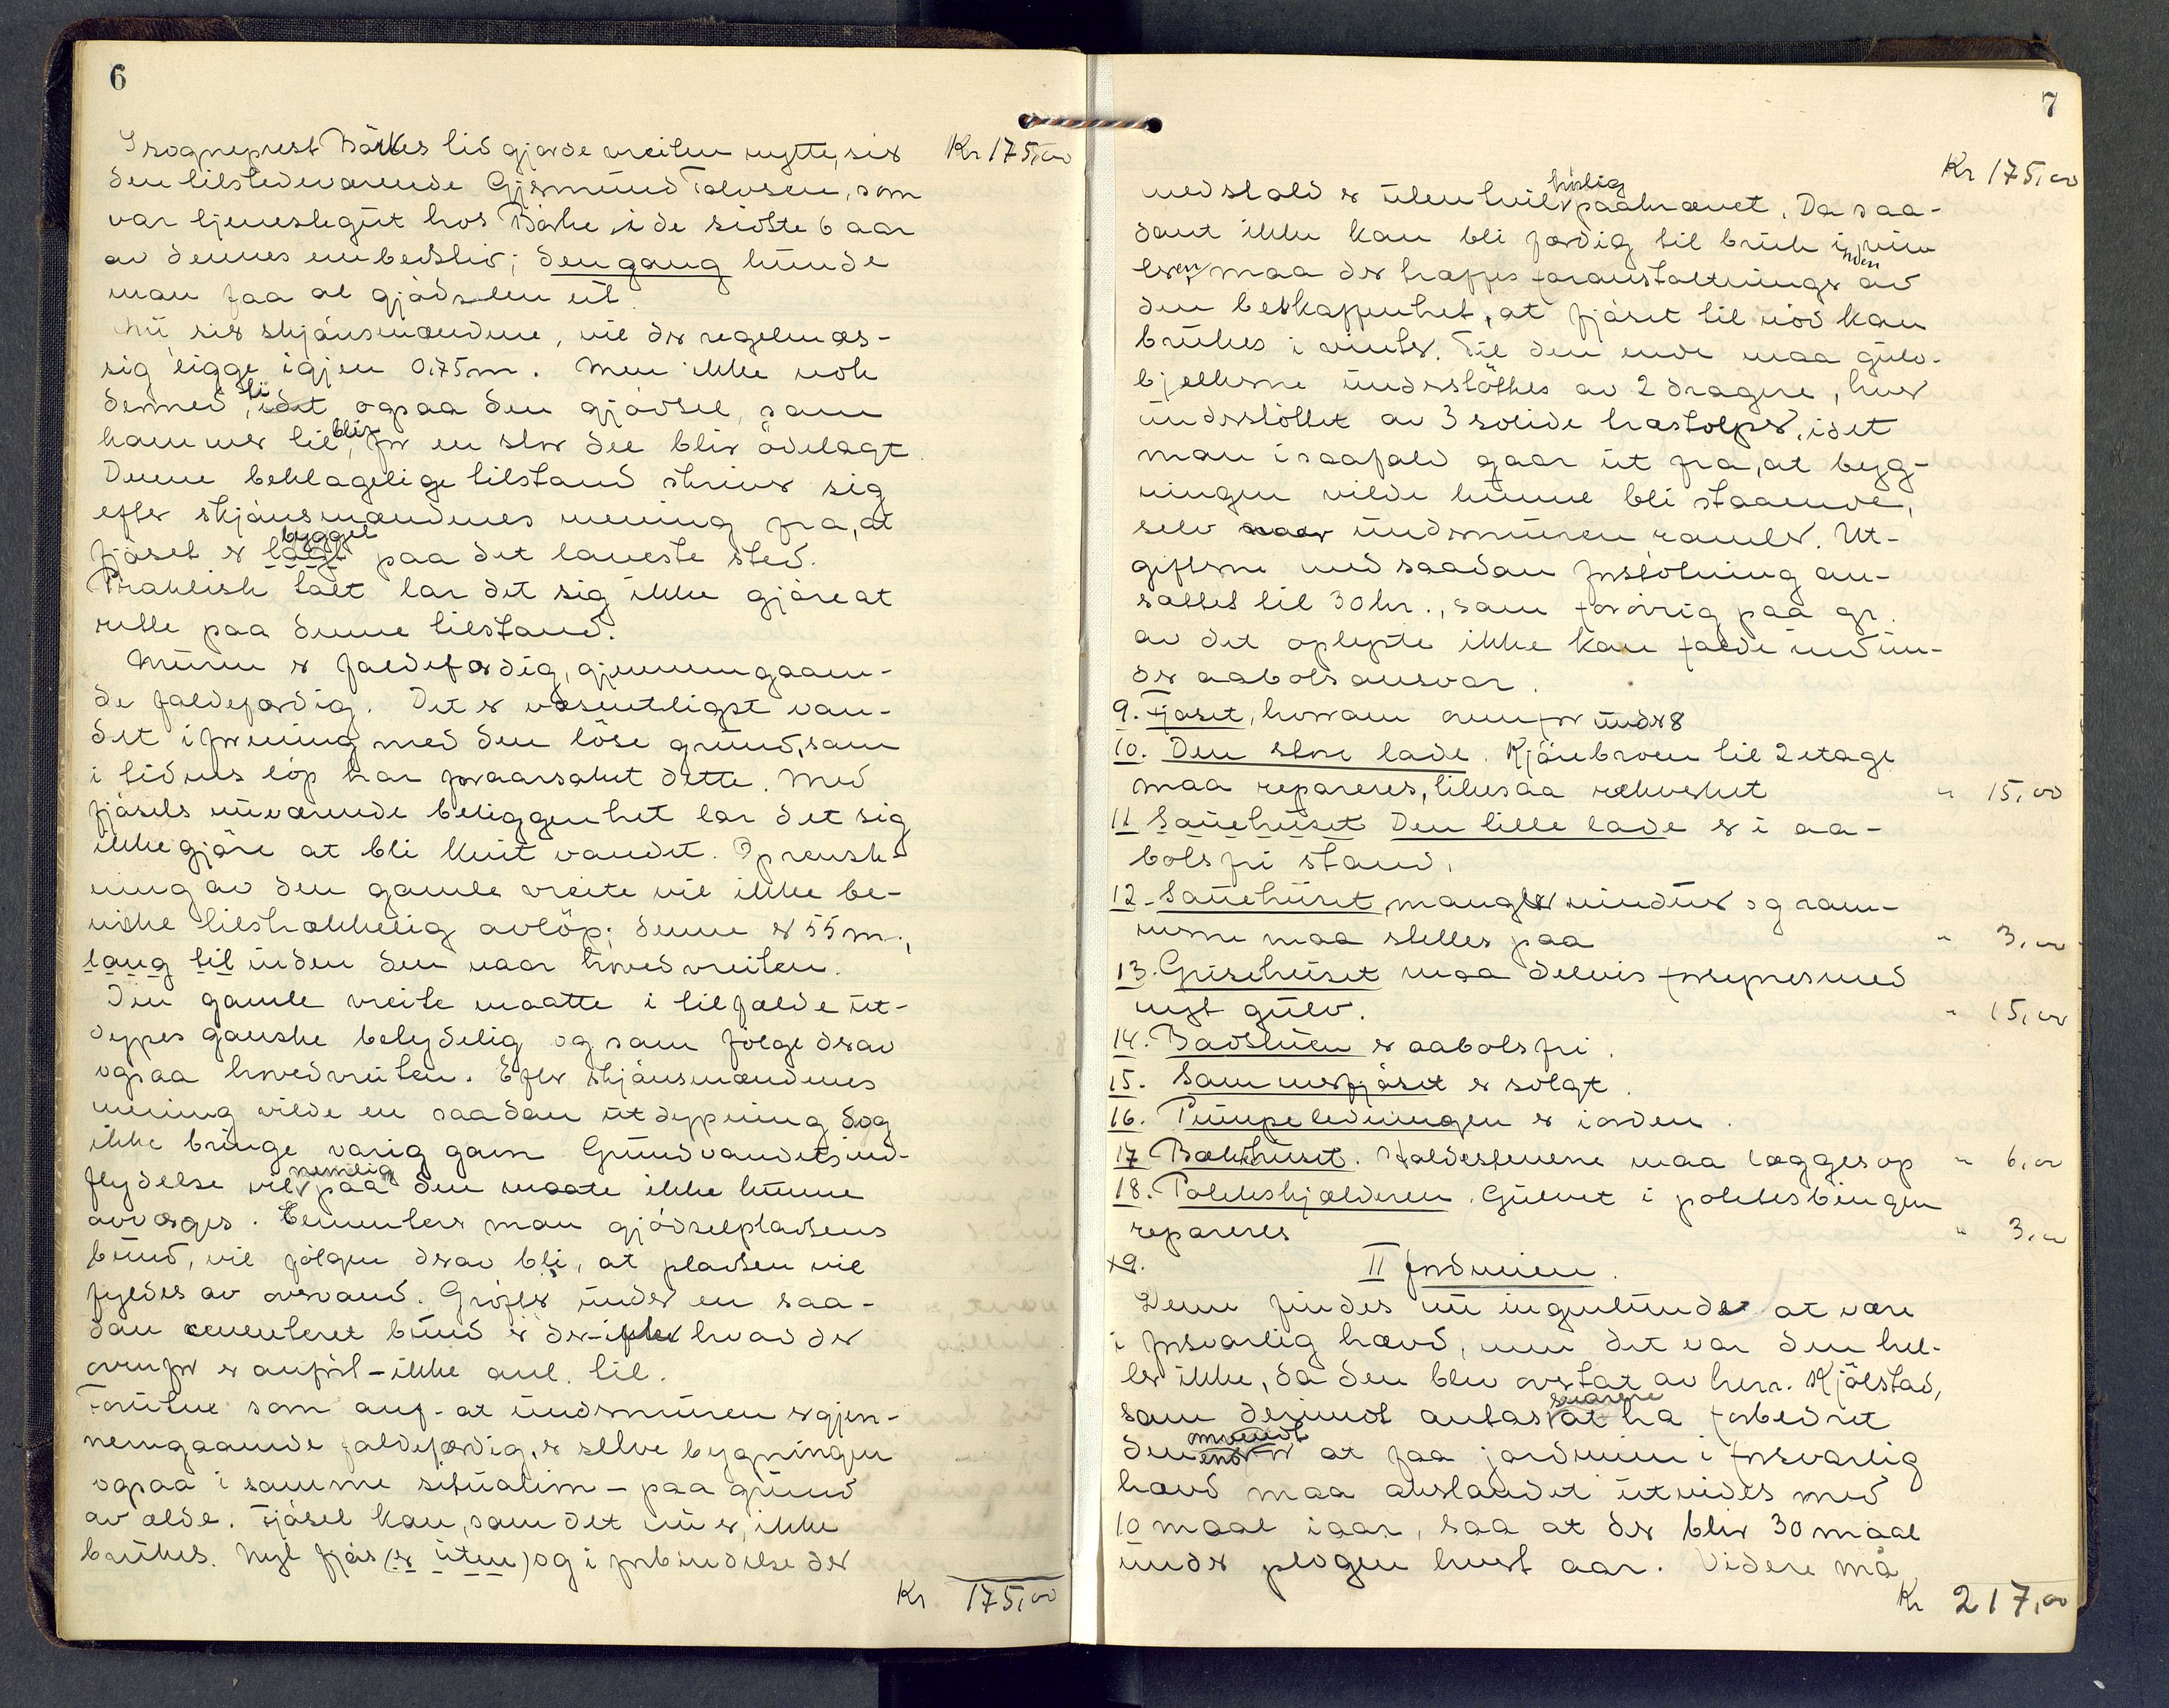 6
I sogneprest Barkes tid gjorde vreiten nytte, sir Kr 175,00
den tilstedeværende Gjermund Talvsen, som
var tjenestegut hos Barke i de sidste 6 aar
av dennes embedstid; dengang kunde
man faa al gjødselen ut.
Nu, sir skjønsmændene, vil der regelmæs-
sig ligge igjen 0,75 m. Men ikke nok
dermed, ti ogsaa den gjødsel, som
kommer til, blir for en stor del blir ödelagt.
Denne beklagelige tilstand skriver sig
efter skjønsmændenes mening fra, at
fjöset er lagt bygget paa det laveste sted.
Praktisk talt lar det sig ikke gjöre at
rette paa denne tilstand.
Muren er faldefærdig, gjennemgaaen-
de faldefærdig. Det er væsentligst van-
det i forening med den löse grund, som
i tidens löp har foraarsaket dette. Med
fjösets nuværende beliggenhet lar det sig
ikke gjöre at bli kvit vandet. Oprensk-
ning av den gamle vreite vil ikke be-
virke tilstrækkelig avlöp; denne er 55 m.,
lang til inden den naar hovedvreiten.
Den gamle vreite maatte i tilfælde ut-
dypes ganske betydelig og som fölge derav
ogsaa hovedvreiten. Efter skjönsmændenes
mening vilde en saadan utdypning dog
ikke bringe varig gavn. Grundvandets ind-
flydelse vil nemlig paa den maate ikke kunne
avværges. Cementerer man gjödselpladsens
bund, vil fölgen derav bli, at pladsen vil
fyldes av overvand. Gröfter under en saa-
dan cementeret bund er der efter hvad der
ovenfor er anfört - ikke anl. til.
Foruten som anf. at undermuren er gjen-
nemgaaende faldefærdig, er selve bygningen
ogsaa i samme situation - paa grund
av ælde. Fjöset kan, som det nu er, ikke
brukes. Nyt fjös (er uten) og i forbindelse der
Kr 175,00
7
Kr 175,00
med stald er utentvil höilig paakrævet. Da saa-
dant ikke kan bli færdig til bruk inden vin-
teren, maa der træffes foranstaltninger av
den beskaffenhet, at fjöset til nöd kan
brukes i vinter. Til den ende maa gulv-
bjelkerne understöttes av 2 dragere, hver
understöttet av 3 solide træstolper, idet
man i saafald gaar ut fra, at byg-
ningen vilde kunne bli staaende,
selv naar undermuren ramler. Ut-
gifterne med saadan forstötning an-
sættes til 30 kr., som forövrig paa gr.
av det oplyste ikke kan falde ind un-
der aabotsansvar.
9. Fjöset, hvorom ovenfor under 8
10. Den store lade. Kjörebroen til 2 etage
maa repareres, likesaa rækverket " 15,00
11 Sauehuset Den lille lade er i aa-
botsfri stand.
12. Sauehuset mangler vinduer og ram-
merne maa stelles paa " 3,00
13. Grisehuset maa delvis forsynes med
nyt gulv. " 15,00
14. Badstuen er aabotsfri.
15. Sommerfjöset er solgt.
16. Pumpeledningen er i orden.
17 Bækhuset. Haldestenene maa lægges op " 6,00
18. Potetkjælderen. Gulvet i potetesbingen
repareres " 3,00
19. II Jordveien.
Denne findes nu ingenlunde at være
i forsvarlig hævd, men det var den hel-
ler ikke, da den blev overtat av herr. Kjölstad,
som derimot antas snarere at ha forbedret
den end omvendt for at faa jordveien i forsvarlig
hævd maa akerlandet utvides med
10 maal iaar, saa at der blir 30 maal
under plogen hvert aar. Videre må
Kr 217,00